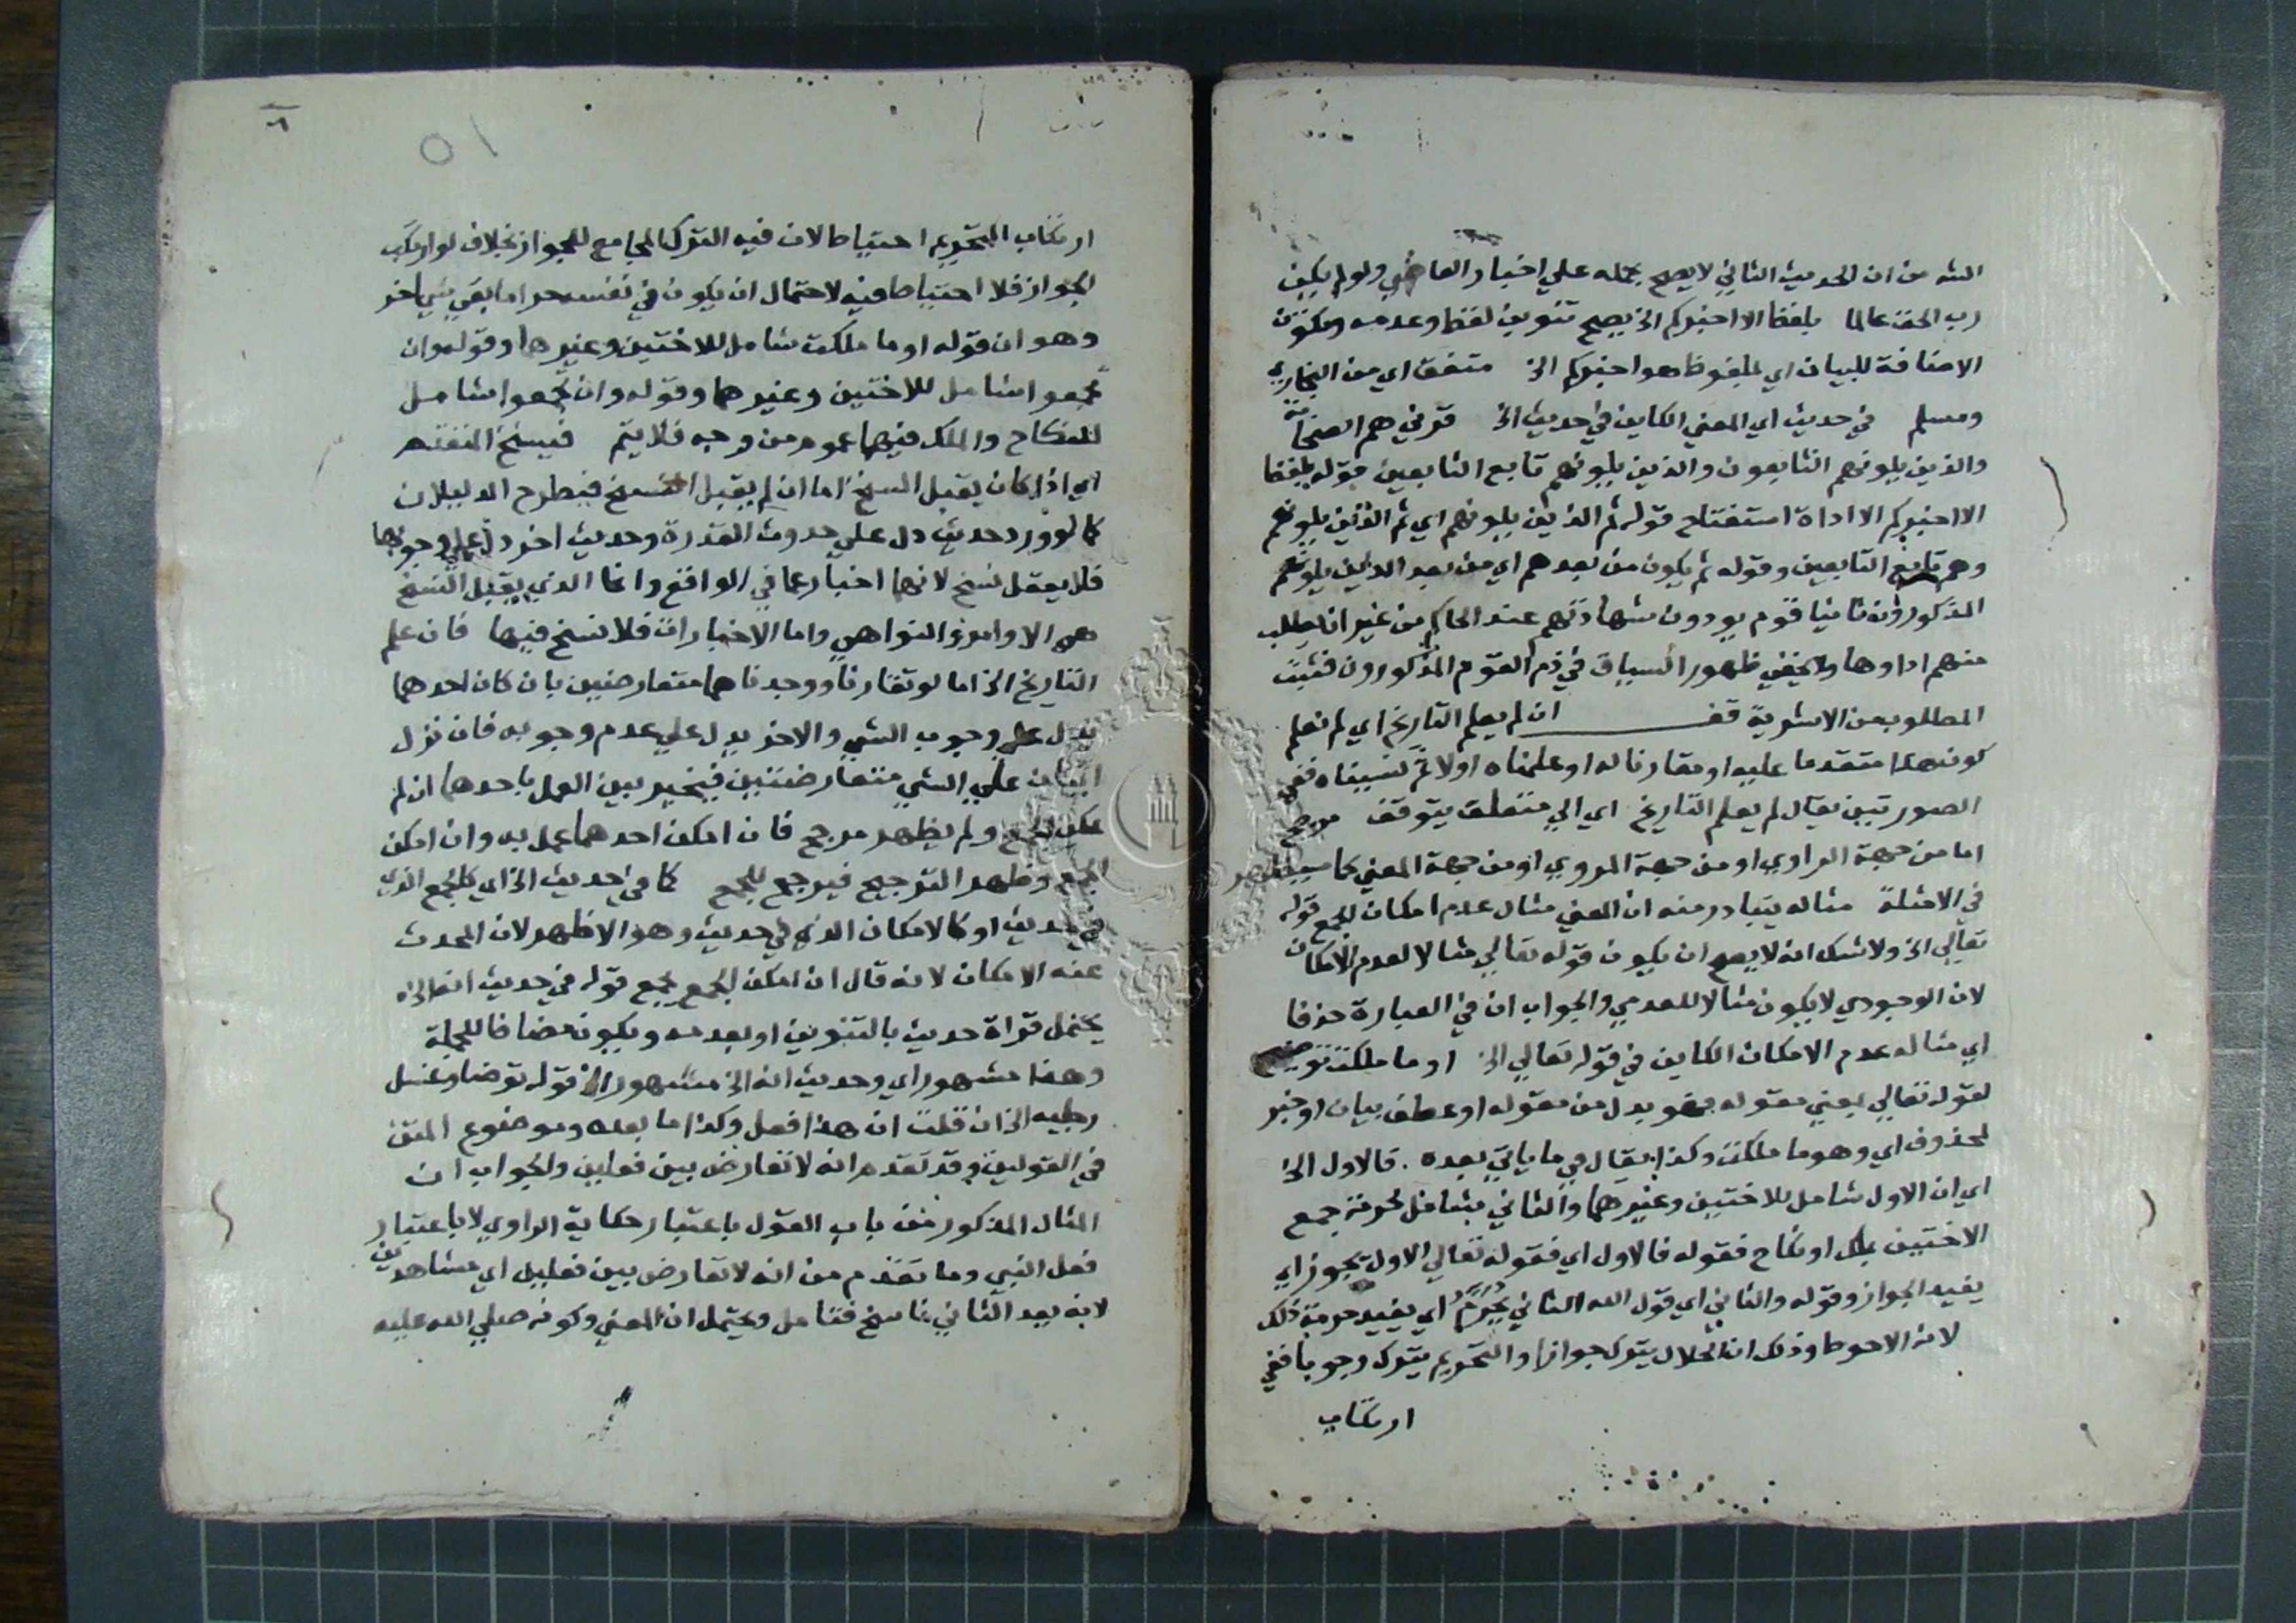 الله من ان الحديث الثاني لا يصح حمله علي اخبار القاضي ولو لم يكن
رب الحق عالما بلفظ الا اخبركم الخ يصح تنوين لفظ وعدمه وتكون
الاضافة للبيان اي بملفوظ هو اخبركم الخ متفق اي من البخاري
ومسلم في حديث اي المعني الكاين في حديث الخ قرني هم الصحابة
والذين يلونهم التابعون والذين يلونهم تابع التابعين قوله بلفظ
الا اخبركم الا اداة استفتاح قوله ثم الذين يلونهم اي ثم الذين يلونهم
وهم تابع التابعين وقوله ثم يكون من بعدهم اي من بعد الذين يلونهم
المذكورون ثانيا قوم يودون شهادتهم عند الحاكم من غير ان يطلب
منهم اداوها ولا يخفي ظهور السياق في ذم القوم المذكورون فثبت
المطلوب من الاشربة قف ان لم يعلم التاريخ اي لم نعلم
كون هذا متقدما عليه او مقارنا له او علمناه اولا ثم نسيناه ففي
الصورتين يقال لم يعلم التاريخ اي الي متعلق يتوقف مرجح
اما من جهة الراوي او من جهة المروي او من جهة المعني كما سيظهر
في الامثلة مثاله يتبادر منه ان المعني مثال عدم امكان الجمع قوله
تعالي الخ ولا شك انه لا يصح ان يكون قوله تعالي مثالا لعدم الامكان
لان الوجودي لا يكون مثالا للعدمي والجواب ان في العبارة حذفا
اي مثاله عدم الامكان الكاين في قوله تعالي الخ او ما ملكت توضيح
لقوله تعالي يعني مقوله فهو بدل من مقوله او عطف بيان او خبر
لمحذوف اي وهو ما ملكت وكذا يقال في ما ياتي بعده . فالاول الخ
اي ان الاول شامل للاختين وغيرهما والثاني شامل لحرمة جمع
الاختين بملك او نكاح فقوله فالاول اي فقوله تعالي الاول يجوز اي
يفيد الجواز وقوله والثاني اي قول الله الثاني يحرم اي يفيد حرمة ذلك
لانه الاحوط وذلك ان الحلال يترك جوازا والتحريم يترك وجوبا ففي
ارتكاب
٥١
ارتكاب التحريم احتياط لان فيه الترك المجامع للجواز بخلاف لو ارتكب
الجواز فلا احتياط فيه لاحتمال ان يكون في نفسه حراما بقي شي اخر
وهو ان قوله او ما ملكت شامل للاختين وغيرهما وقوله وان
تجمعوا شامل للاختين وغيرهما وقوله وان تجمعوا شامل
للنكاح والملك فبينهما عموم من وجه فلا يتم فينسخ المتقدم
اي اذا كان يقبل النسخ اما ان لم يقبل النسخ فيطرح الدليلان
كما لو ورد حديث دل علي حدوث القدرة وحديث اخر دل علي وجوبها
فلا يعقل نسخ لانهما اخبار عما في الواقع وانما الذي يقبل النسخ
هي الاوامر والنواهي واما الاخبارات فلا نسخ فيها فان علم
التاريخ الخ اما لو تقارنا ووجدناهما متعارضين بان كان احدهما
يدل علي وجوب الشي والاخر يدل علي عدم وجوبه فان نزل
ايتان علي الشي متعارضتين فيخير بين العمل باحدهما ان لم
يمكن الجمع ولم يظهر مرجح فان امكن احدهما عمل به وان امكن
الجمع وظهر الترجيح فيرجح الجمع كما في حديث الخ اي كالجمع الذي
في حديث او كالامكان الذي في حديث وهو الاظهر لان المحدث
عنه الامكان لانه قال ان امكن الجمع جمع قوله في حديث انه الخ
يحتمل قراة حديث بالتنوين او بعدمه ويكون مضافا للجملة
وهذا مشهور اي وحديث انه الخ مشهور الخ قوله توضا وغسل
رجليه الخ ان قلت ان هذا فعل وكذا ما بعده وموضوع المتن
في القولين وقد تقدم انه لا تعارض بين فعلين والجواب ان
المثال المذكور من باب القول باعتبار حكاية الراوي لا باعتبار
فعل النبي وما تقدم من انه لا تعارض بين فعليين اي مشاهدين
لانه يعد الثاني ناسخ فتامل ويحتمل ان المعني وكونه صلي الله عليه